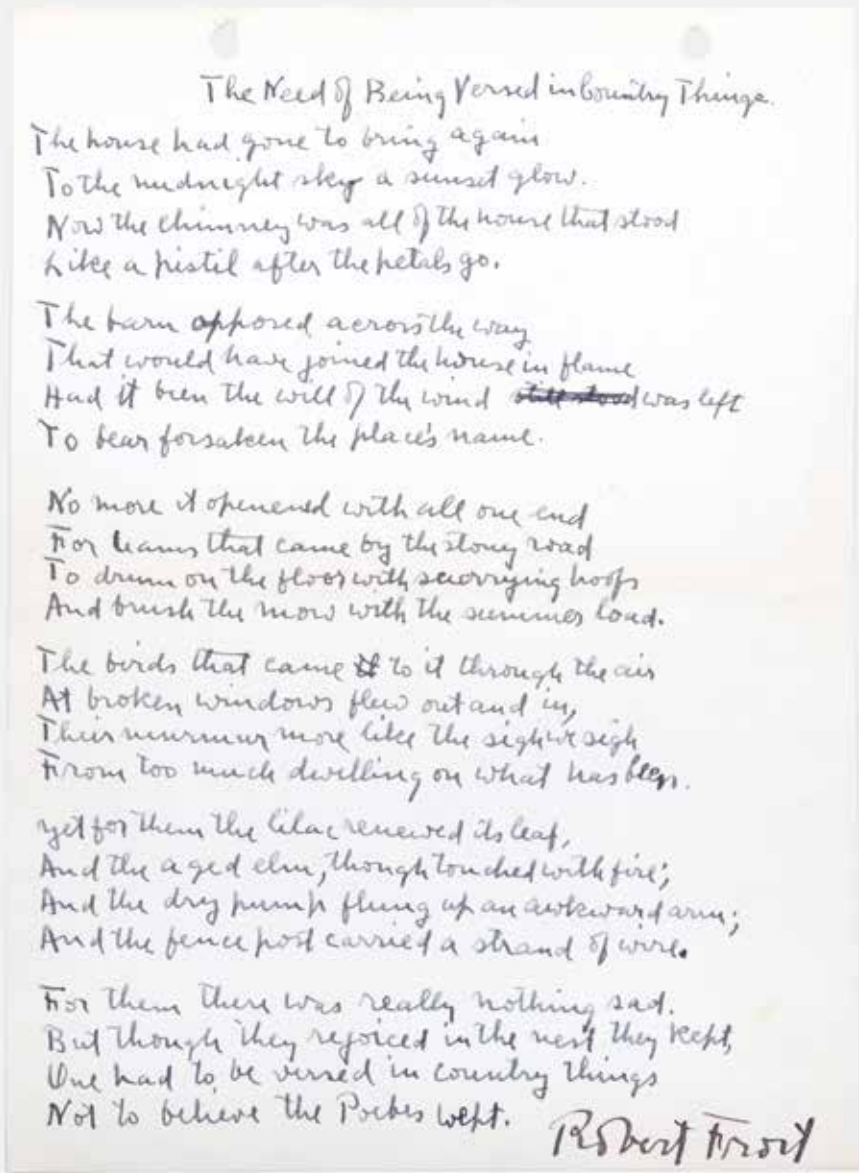 The Need of Being Versed in Country Things.
The house had gone to bring again
To the midnight sky a sunset glow.
Now the chimney was all of the house that stood
Like a pistil after the petals go.
The barn opposed across the way
That would have joined the house in flame
Had it been the will of the wind still stood was left
To bear forsaken the place's name.
No more it openened with all one end
For teams that came by the stony road
To drum on the floor with scurrying hoofs
And brush the mow with the summer load.
The birds that came it to it through the air
At broken windows flew out and in,
Their murmur more like the sigh we sigh
From too much dwelling on what has been.
Yet for them the lilac renewed its leaf,
And the aged elm, though touched with fire;
And the dry pump flung up an awkward arm;
And the fence post carried a strand of wire.
For them there was really nothing sad.
But though they rejoiced in the nest they kept,
One had to be versed in country things
Not to believe the Phoebes wept.
Robert Frost